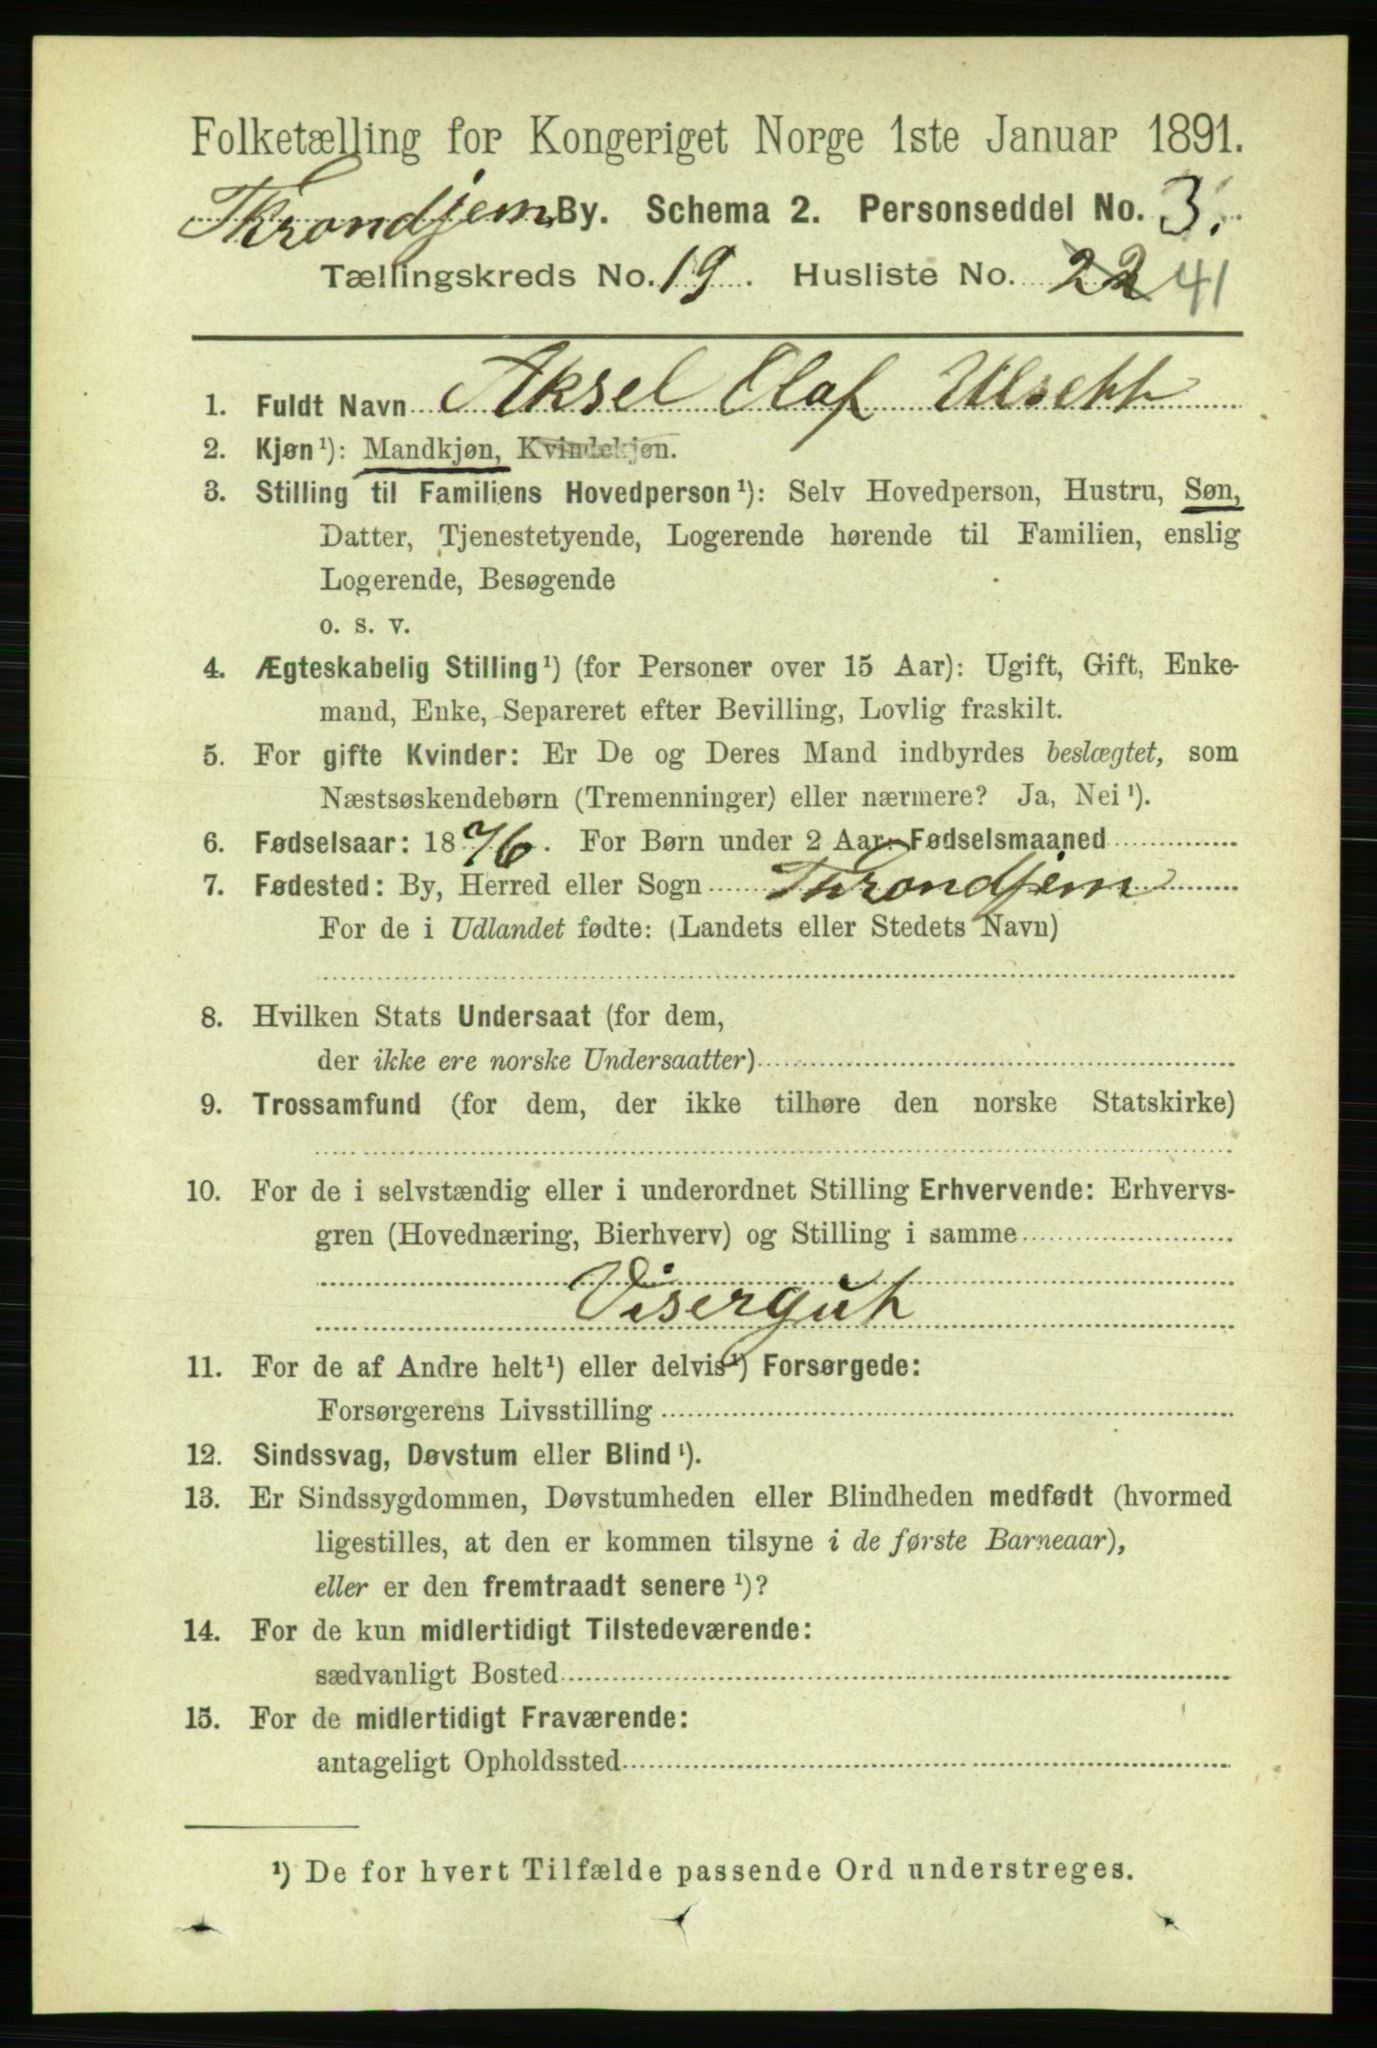 Folketælling for Kongeriget Norge 1ste Januar 1891.
Throndjem By. Schema 2. Personseddel No. 3.
Tællingskreds No. 19. Husliste No. 22 41
1. Fuldt Navn Aksel Olaf Ulseth
2. Kjøn¹): Mandkjøn, Kvindekjøn.
3. Stilling til Familiens Hovedperson¹): Selv Hovedperson, Hustru, Søn,
Datter, Tjenestetyende, Logerende hørende til Familien, enslig
Logerende, Besøgende
o. s. v.
4. Ægteskabelig Stilling¹) (for Personer over 15 Aar): Ugift, Gift, Enke-
mand, Enke, Separeret efter Bevilling, Lovlig fraskilt.
5. For gifte Kvinder: Er De og Deres Mand indbyrdes beslægtet, som
Næstsøskendebørn (Tremenninger) eller nærmere? Ja, Nei¹).
6. Fødselsaar: 1876. For Børn under 2 Aar: Fødselsmaaned
7. Fødested: By, Herred eller Sogn Throndjem
For de i Udlandet fødte: (Landets eller Stedets Navn)
8. Hvilken Stats Undersaat (for dem,
der ikke ere norske Undersaatter)
9. Trossamfund (for dem, der ikke tilhøre den norske Statskirke)
10. For de i selvstændig eller i underordnet Stilling Erhvervende: Erhvervs-
gren (Hovednæring, Bierhverv) og Stilling i samme
Visergut
11. For de af Andre helt¹) eller delvis¹) Forsørgede:
Forsørgerens Livsstilling
12. Sindssvag, Døvstum eller Blind¹).
13. Er Sindssygdommen, Døvstumheden eller Blindheden medfødt (hvormed
ligestilles, at den er kommen tilsyne i de første Barneaar),
eller er den fremtraadt senere¹)?
14. For de kun midlertidigt Tilstedeværende:
sædvanligt Bosted
15. For de midlertidigt Fraværende:
antageligt Opholdssted
¹) De for hvert Tilfælde passende Ord understreges.